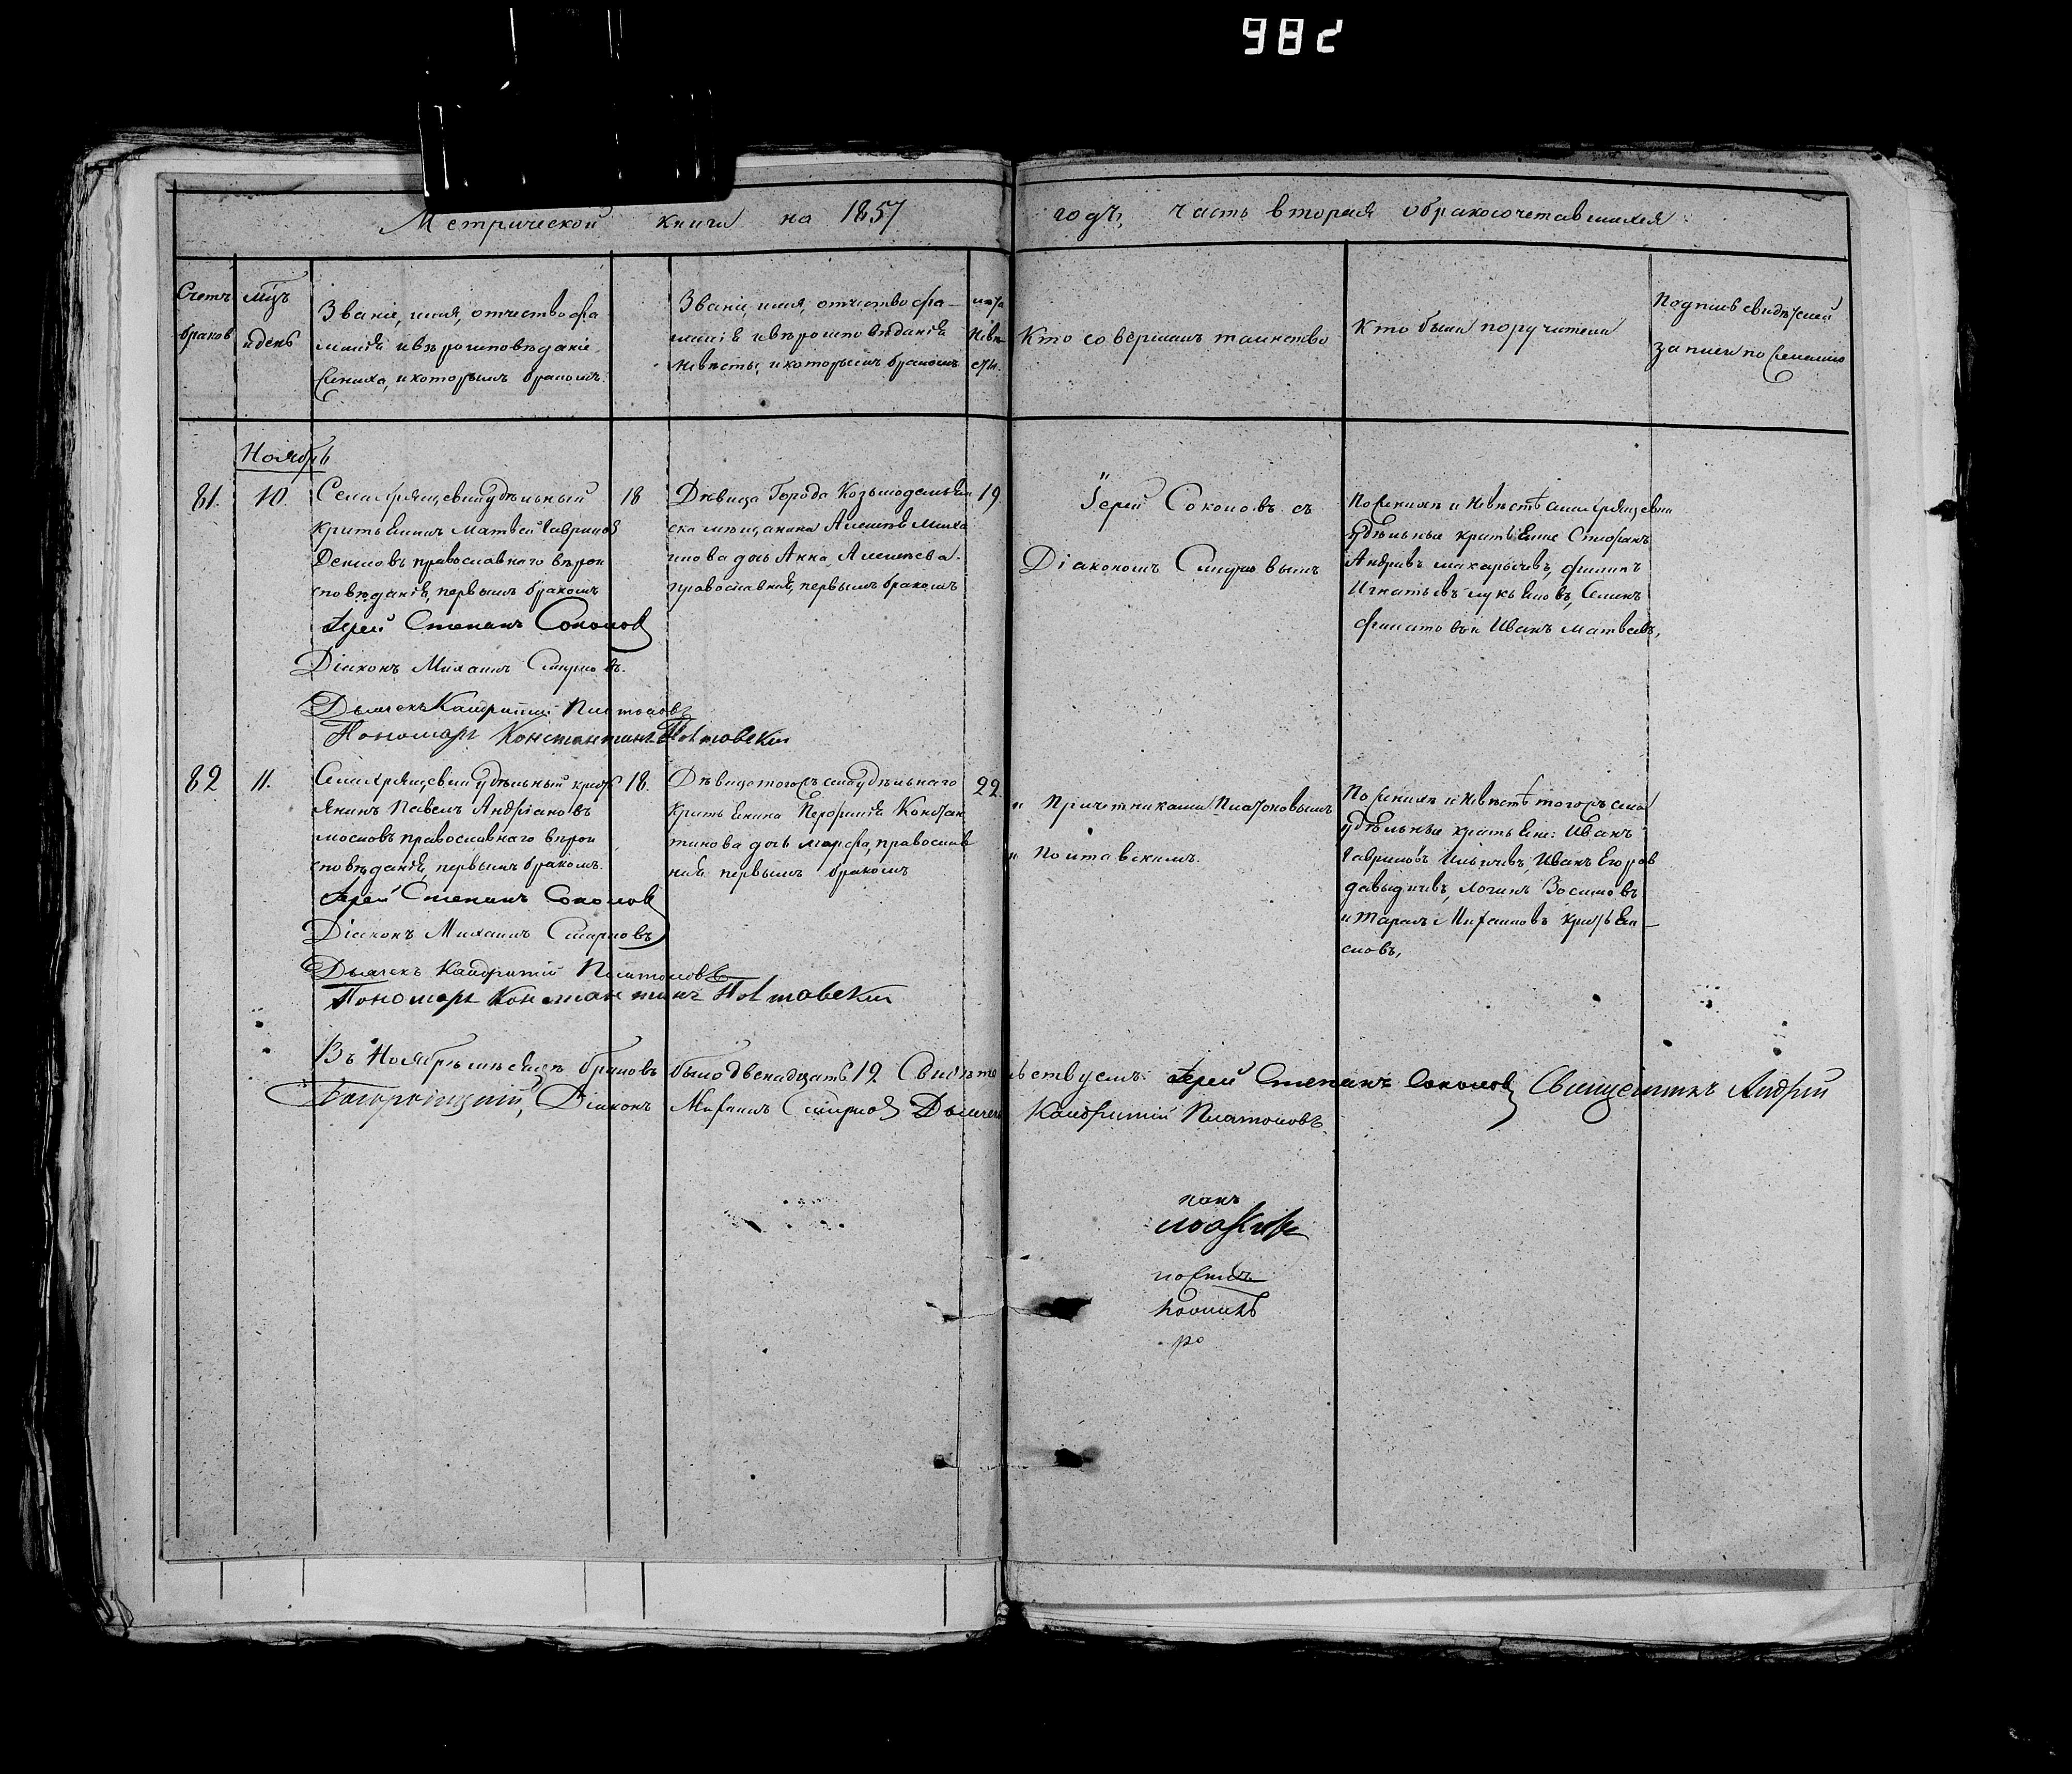 982
Метрической книги на 1857 годъ, часть вторая о бракосочетавшихся
Счетъ браков
мцъ и день
Званіе, имя, отчество фа
милія и вѣроисповѣданіе
жениха, и которымъ бракомъ.
Званіе, имя, отчество фа-
милія и вѣроисповѣданія
невѣсты, и которымъ бракомъ
лѣта Невѣ сты.
Кто совершалъ таинство
Кто были поручители
Подпись свидѣтелей
записи по желанію
Ноябрь
81. 10. Села удѣльный
крестьянинъ Матвей Гавриловъ
православнаго вѣрои
сповѣданія, первымъ бракомъ
Іерей Степанъ Соколов
Діаконъ Михаилъ Смирновъ.
Дьячекъ Платоновъ
Пономарь Константинъ Полтавскій
18
Дѣвица Города Козьмодемьян
ска мѣщанина Алексѣя Миха
лова дочь Анна Алексѣева
православная, первымъ бракомъ
19.
Іерей Соколовъ съ
Діакономъ Смирновымъ
По женихѣ и невѣстѣ села
удѣльные крестьяне Стефанъ
Андреевъ Макарычевъ, Филипъ
Игнатьевъ Лукьяновъ, Семенъ
Филатовъ и Иванъ Матвеевъ,
82 11. Села удѣльный кресть
янинъ Павелъ Андріановъ
православнаго вѣрои
сповѣданія, первымъ бракомъ.
Іерей Степанъ Соколов
Діаконъ Михаилъ Смирновъ
Дьячекъ Платоновъ
Пономарь Константинъ Полтавскій
18.
Дѣвица тогожъ села удѣльнаго
крестьянина Перфилія Констан
тинова дочь Марфа, православ
ная первымъ бракомъ
22.
" Причетниками Платоновымъ
" Полтавскимъ.
По женихѣ и невѣстѣ тогожъ села
удѣльные крестьяне: Иванъ
Гавриловъ Ильичевъ, Иванъ Егоров
Давыдычевъ, Логинъ Зосимовъ
и Тарасъ Михайловъ
Въ Ноябрѣ мѣсяцѣ браковъ было двенадцать 12 Свидѣтельствуемъ: Іерей Степанъ Соколов Священникъ Андрей
Діаконъ Михаилъ Смирнов Дьячекъ Платоновъ